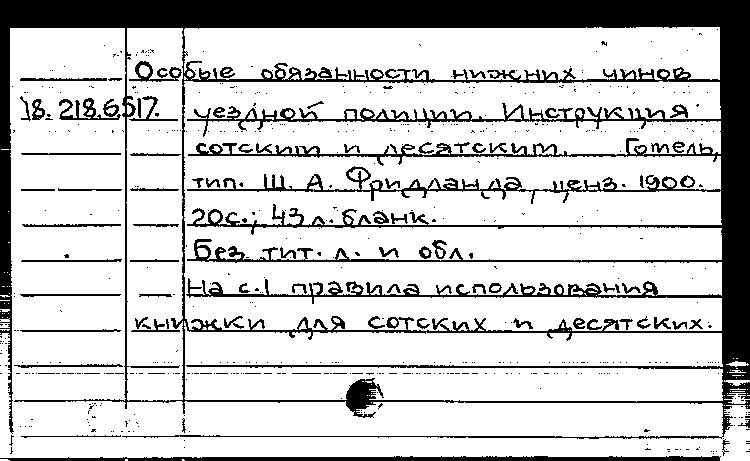 Особые обязанности нижних чинов
18.218.6517. уездной полиции. Инструкция
сотским и десятским. Гомель,
тип. Ш. А. Фридланда, ценз. 1900.
20с.; 43 л. бланк.
Без тит. л. и обл.
На с.1 правила использования
книжки для сотских и десятских.